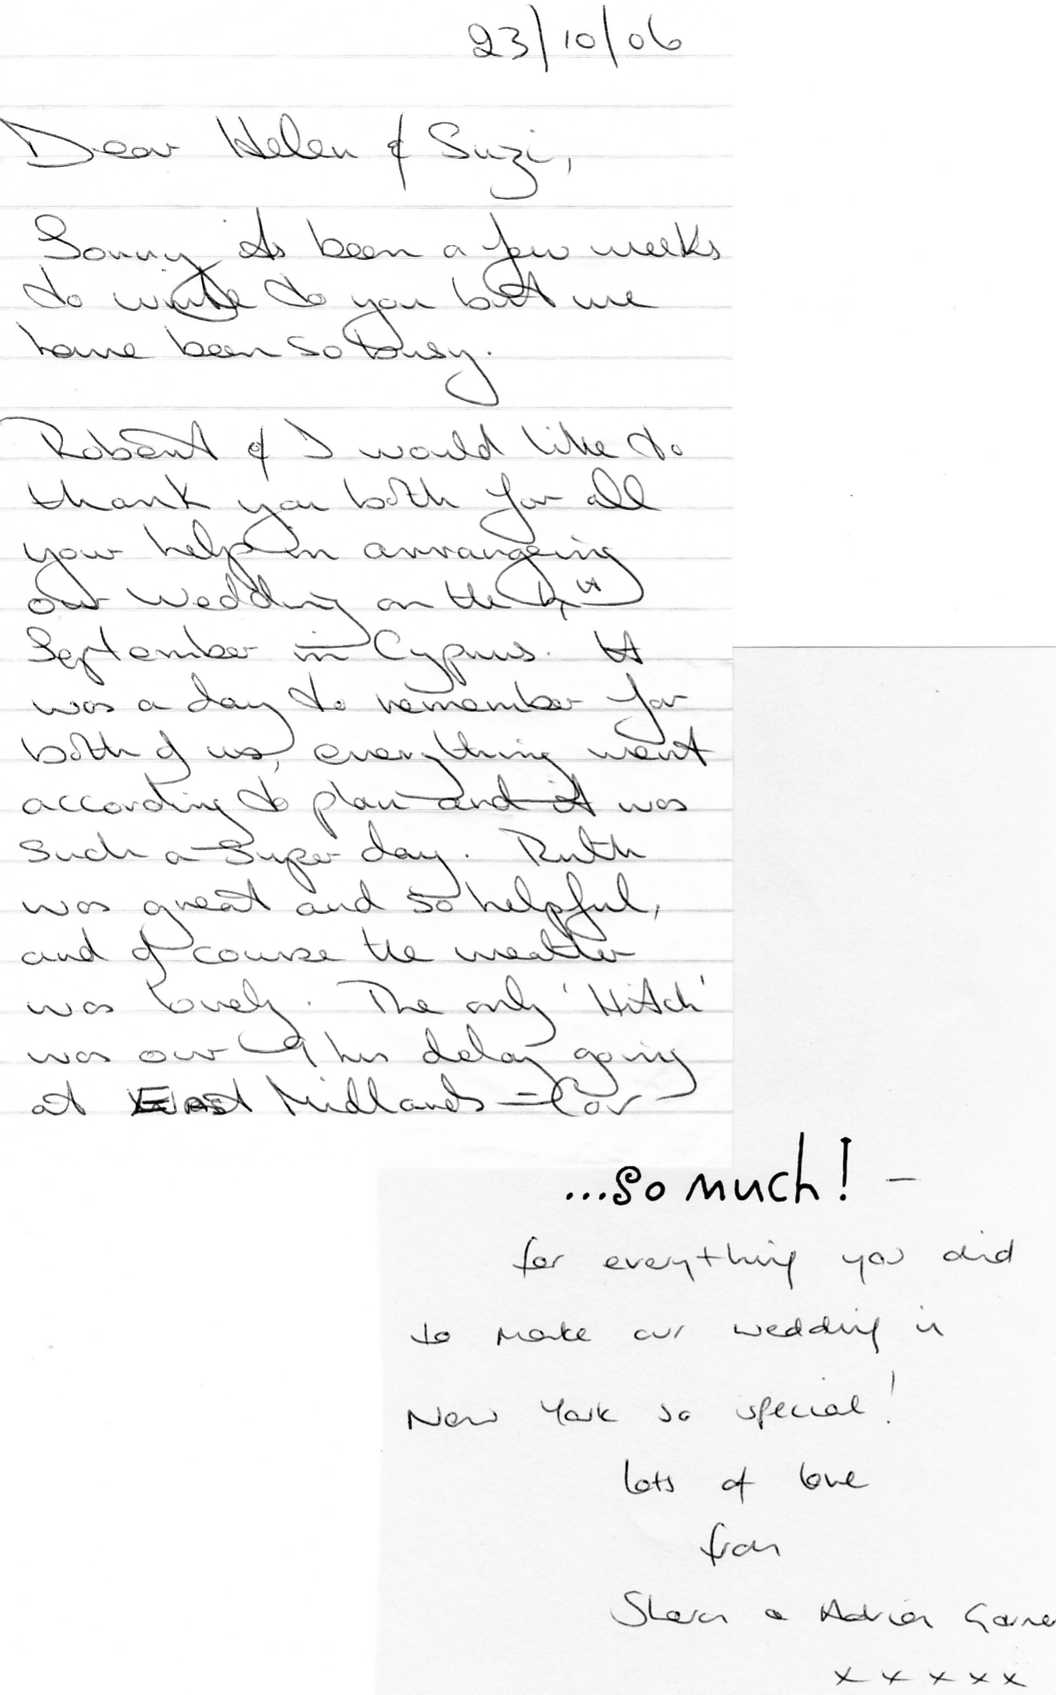 23/10/06
Dear Helen & Suzi,
Sorry its been a few weeks
to write to you but we
have been so busy.
Robert & I would like to
thank you both for all
your help in arrangeing
our Wedding on the
September in Cyprus. It
was a day to remember for
both of us, everything went
according to plan and it was
such a super day. Ruth
was great and so helpful,
and of course the weather
was lovely. The only 'Hitch'
was our 9 hrs delay going
at East Midlands =
...so much! –
for everything you did
to make our wedding in
New York so special!
lots of love
from
Sharon & Adrian
x x x x x